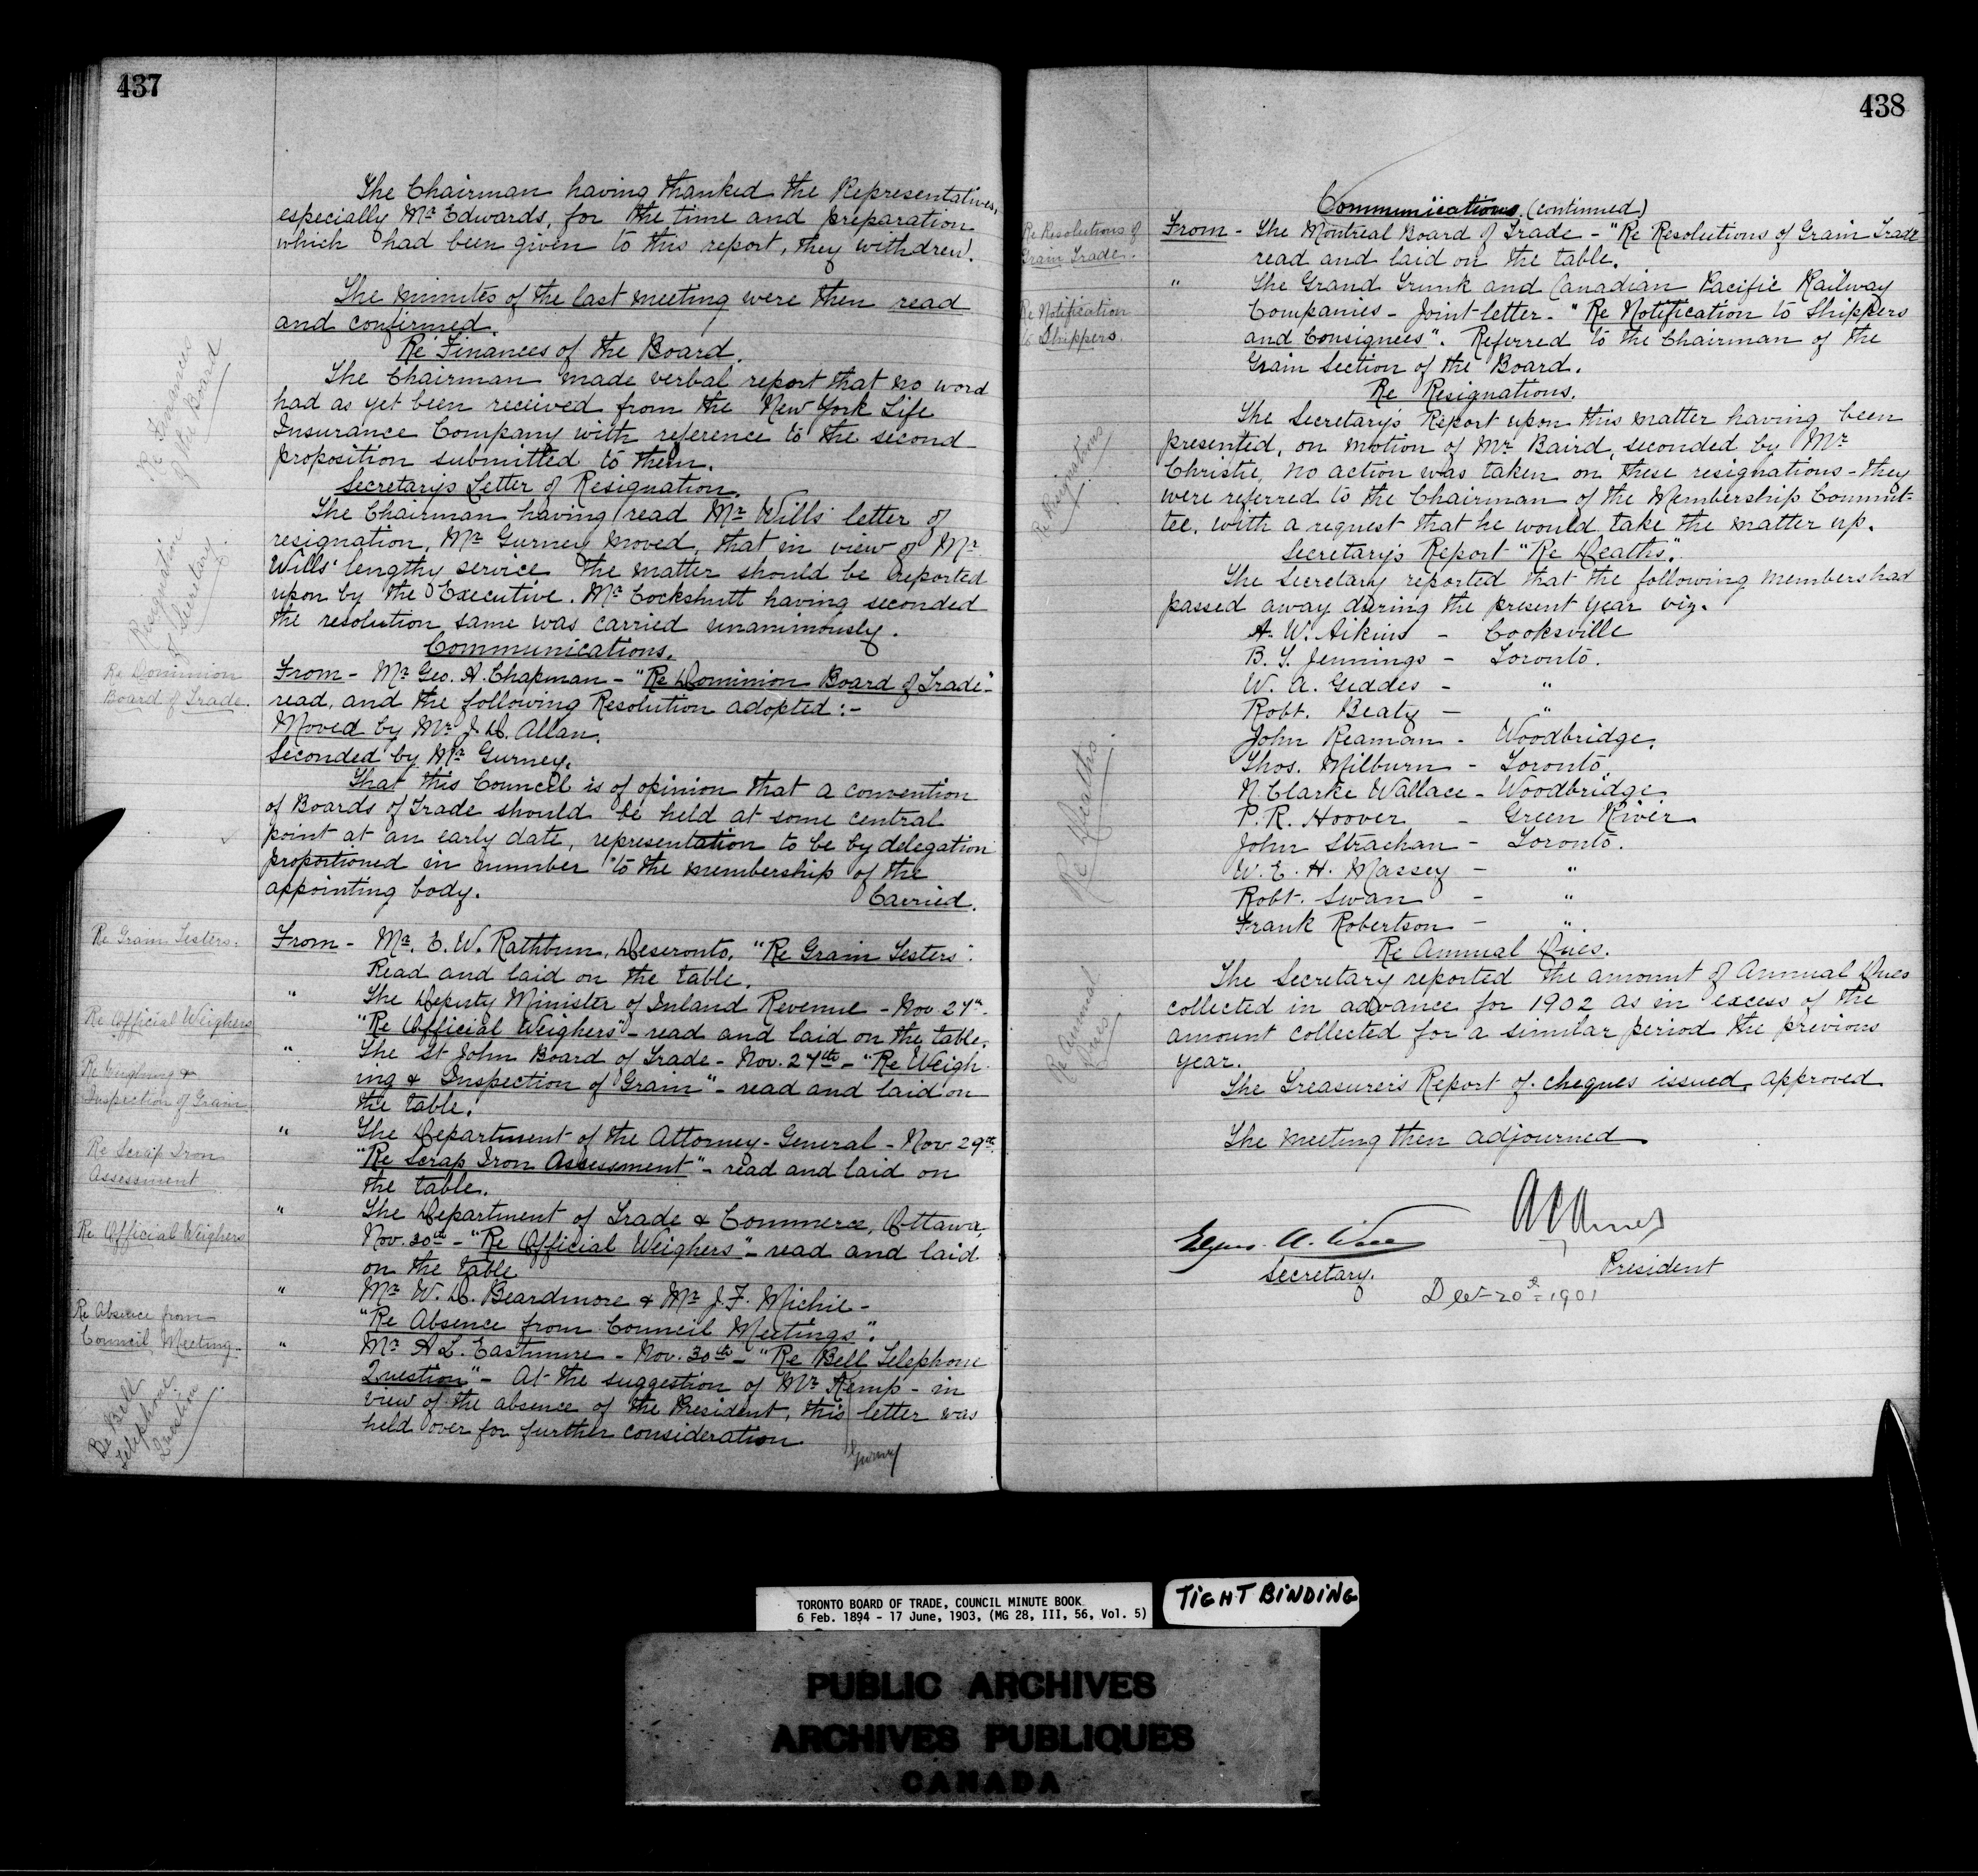 437
The Chairman having thanked the Representatives,
especially Mr. Edwards, for the time and preparation
which had been given to this report, they withdrew.
The minutes of the last meeting were then read
and confirmed.
Re Finances of the Board
Re Finances of the Board.
The Chairman made verbal report that no word
had as yet been received from the New York Life
Insurance Company with reference to the second
proposition submitted to them.
Resignation of Secretary.
Secretary's Letter of Resignation.
The Chairman having read Mr. Wills' letter of
resignation, Mr. Gurney moved, that in view of Mr.
Wills' lengthy service the matter should be reported
upon by the Executive. Mr. Cockshutt having seconded
the resolution same was carried unanimously.
Communications.
Re Dominion
Board of Trade.
From - Mr. Geo. A. Chapman - "Re Dominion Board of Trade" -
read, and the following Resolution adopted :-
Moved by Mr. J. D. Allan.
Seconded by Mr. Gurney.
That this Council is of opinion that a convention
of Boards of Trade should be held at some central
point at an early date, representation to be by delegation
proportioned in number to the membership of the
appointing body.
Carried.
Re Grain Testers.
From - Mr. E. W. Rathbun, Deseronto, "Re Grain Testers".
Read and laid on the table.
Re Official Weighers
" The Deputy Minister of Inland Revenue - Nov 27th -
"Re Official Weighers" - read and laid on the table.
Re Weighing &
Inspection of Grain
" The St John Board of Trade - Nov. 27th - "Re Weigh-
ing & Inspection of Grain" - read and laid on
the table.
Re Scrap Iron
Assessment
" The Department of the Attorney-General - Nov 29th.
"Re Scrap Iron Assessment" - read and laid on
the table.
Re Official Weighers
" The Department of Trade & Commerce, Ottawa,
Nov. 30th - "Re Official Weighers" - read and laid
on the table
Re Absence from
Council Meeting.
" Mr. W. D. Beardmore & Mr. J. F. Michie -
"Re Absence from Council Meetings".
Re Bell
Telephone
Question
" Mr. A. L. Eastmure - Nov. 30th - "Re Bell Telephone
Question" - At the suggestion of Mr. Kemp - in
view of the absence of the President, this letter was
held over for further consideration
Gurney
438
Communications. (continued)
Re Resolutions of
Grain Trade.
From - The Montreal Board of Trade - "Re Resolutions of Grain Trade
read and laid on the table.
Re Notification
to Shippers.
" The Grand Trunk and Canadian Pacific Railway
Companies - Joint letter - "Re Notification to Shippers
and Consignees". Referred to the Chairman of the
Grain Section of the Board.
Re Resignations
Re Resignations.
The Secretary's Report upon this matter having been
presented, on motion of Mr. Baird, seconded by Mr.
Christie, no action was taken on these resignations - they
were referred to the Chairman of the Membership Commit-
tee, with a request that he would take the matter up.
Re Deaths.
Secretary's Report "Re Deaths".
The Secretary reported that the following members had
passed away during the present year viz.
A. W. Aikins - Cooksville
B. Y. Jennings - Toronto.
W. A. Geddes - "
Robt. Beaty - "
John Reaman - Woodbridge.
Thos. Milburn - Toronto
N. Clarke Wallace - Woodbridge
P. R. Hoover - Green River
John Strachan - Toronto.
W. E. H. Massey - "
Robt. Swan - "
Frank Robertson - "
Re Annual Dues
Re Annual Dues.
The Secretary reported the amount of Annual Dues
collected in advance for 1902 as in excess of the
amount collected for a similar period the previous
year.
The Treasurer's Report of cheques issued, approved
The meeting then adjourned
A E Ames
President
Edgar A. Wills
Secretary.
Dec 20th 1901
TORONTO BOARD OF TRADE, COUNCIL MINUTE BOOK
6 Feb. 1894 - 17 June, 1903, (MG 28, III, 56, Vol. 5)
TIGHT BINDING
PUBLIC ARCHIVES
ARCHIVES PUBLIQUES
CANADA